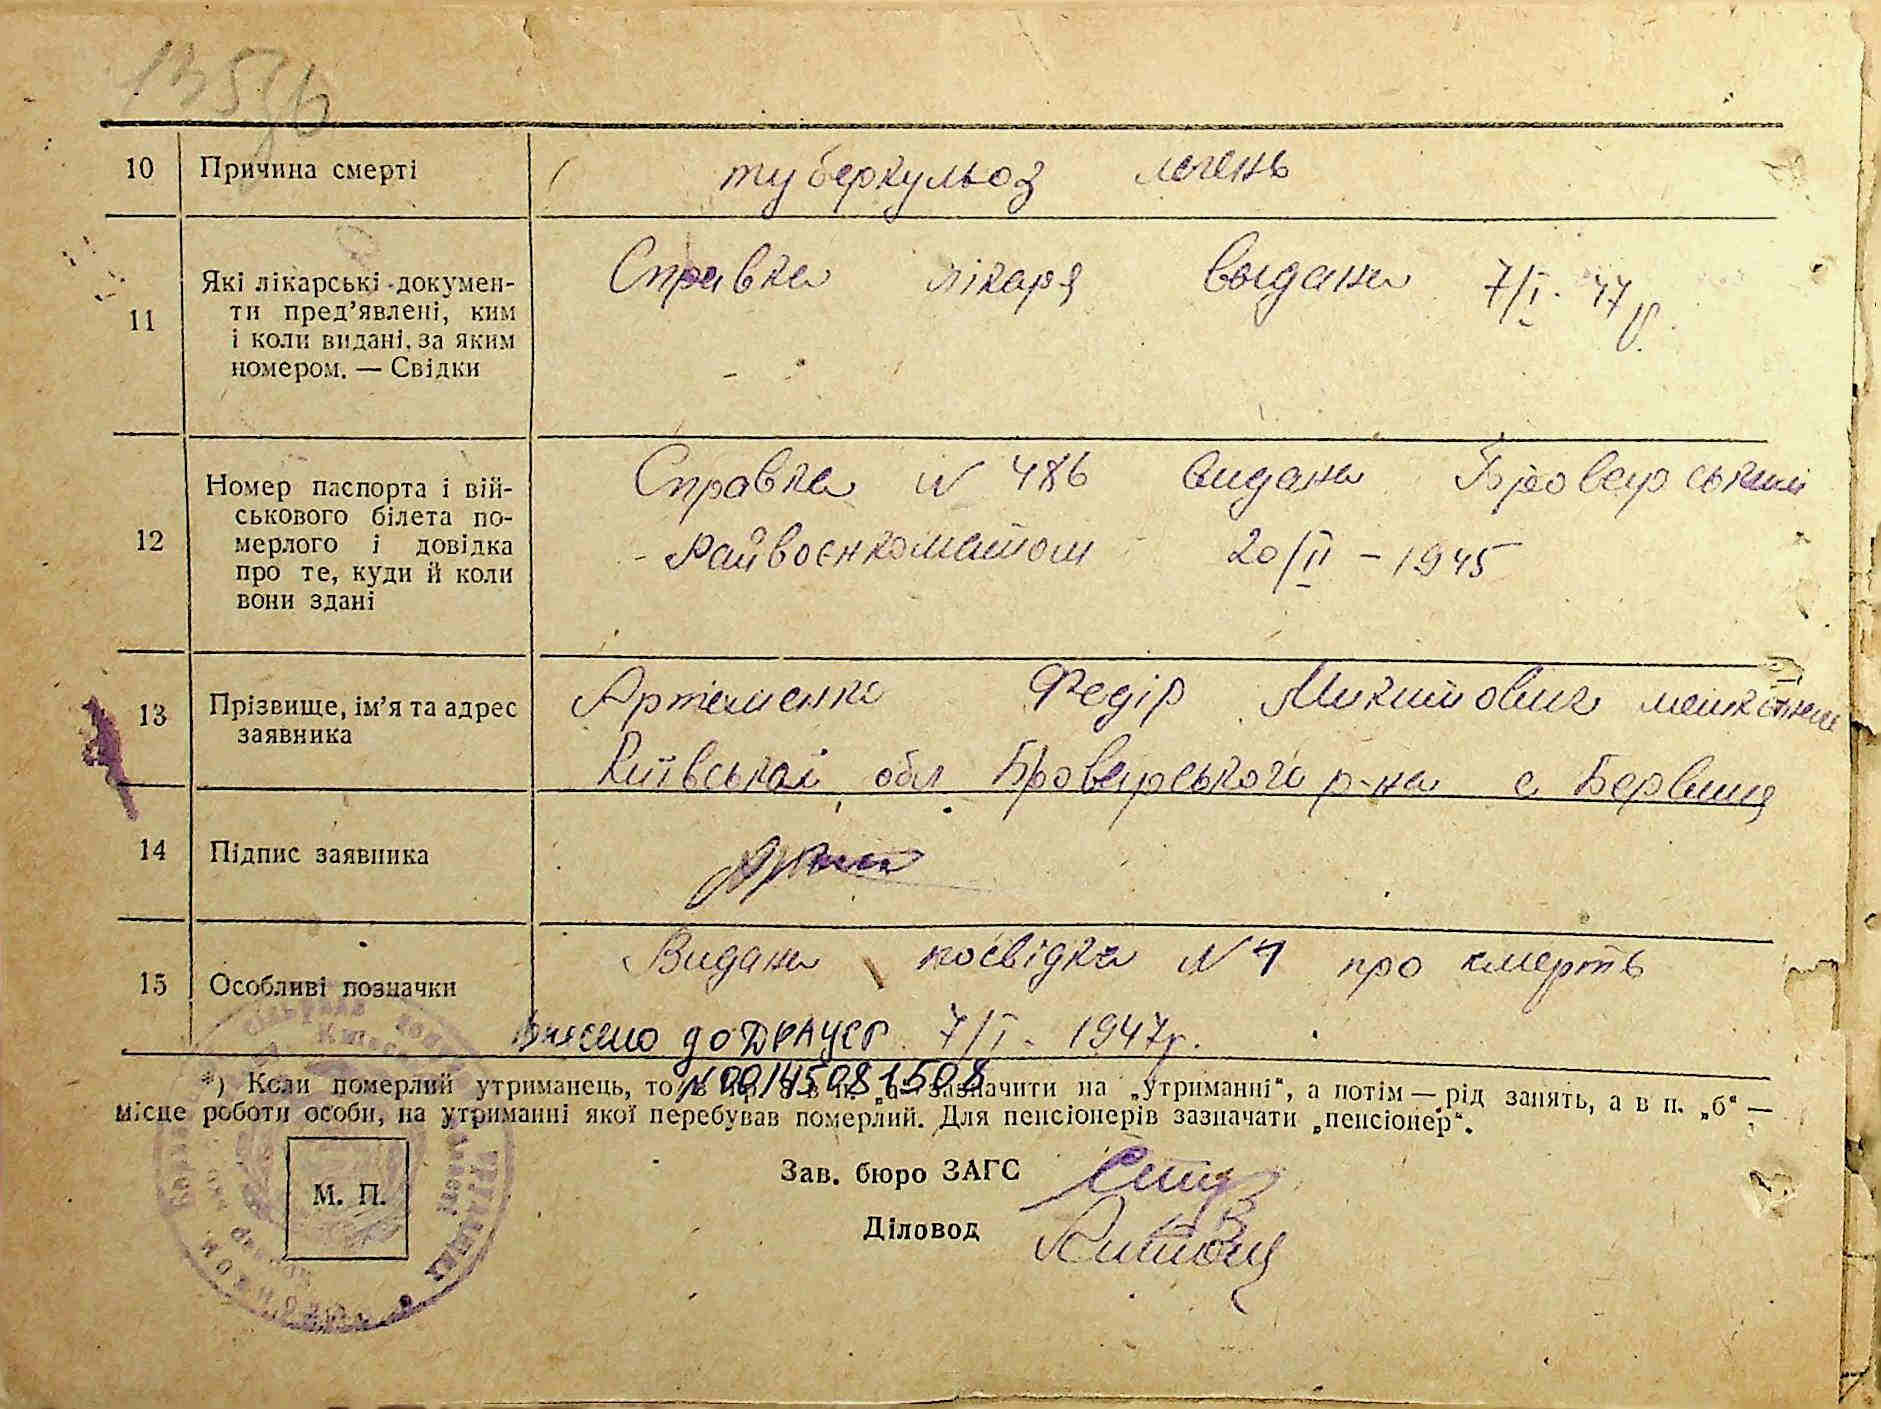 10 Причина смерті туберкульоз легень
11 Які лікарські докумен-
ти пред'явлені, ким
і коли видані, за яким
номером. — Свідки
Справка лікаря выдана 7/I. 47 р.
12 Номер паспорта і вій-
ськового білета по-
мерлого і довідка
про те, куди й коли
вони здані
Справка N 486 видана Броварським
Райвоєнкоматом 20/II – 1945
13 Прізвище, ім'я та адрес
заявника
Артеменко Федір Микитович
Київській обл Броварського р-на с Бервиця
14 Підпис заявника
15 Особливі позначки
Видана посвідка N 1 про смерть
Внесено до ДРАЦСГ 7/I. 1947р.
N 00145081508
*) Коли померлий утриманець, то в зазначити на „утриманні“, а потім — рід занять, а в п. „б“ —
місце роботи особи, на утриманні якої перебував померлий. Для пенсіонерів зазначати „пенсіонер“.
М. П.
Зав. бюро ЗАГС
Діловод